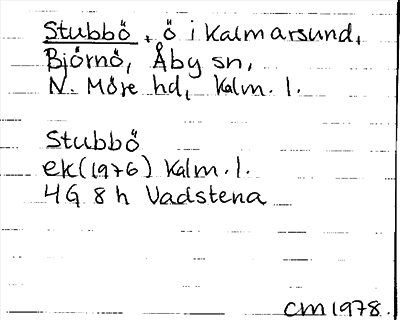 Stubbö, ö i Kalmarsund,
Björnö, Åby sn,
N. Möre hd, Kalm. l.
Stubbö
ek (1976) Kalm. l.
4G 8h Vadstena
CM 1978.